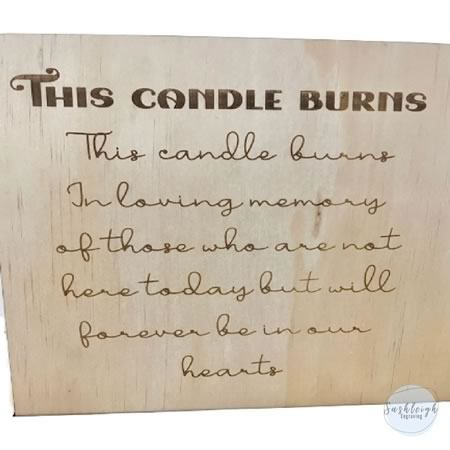 THIS CANDLE BURNS
This candle burns
In loving memory
of those who are not
here today but will
forever be in our
hearts
Sashleigh
Engraving